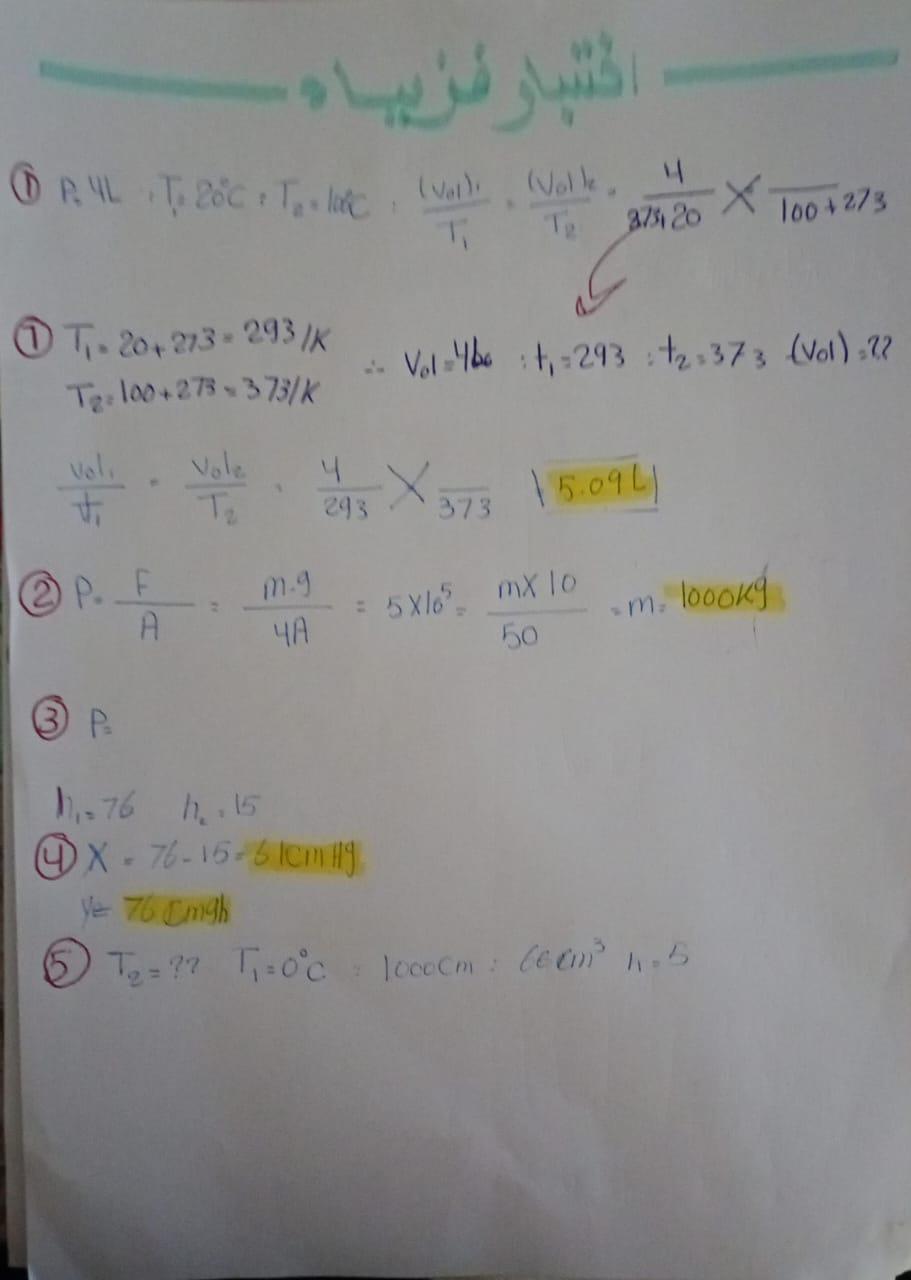 اختبار فزياء
① P. 4L . T₁ 20°C : T₂ = 100°C : (Vol)₁/T₁ = (Vol)₂/T₂ . 4/273+20 X /100+273
① T₁ = 20+273 = 293/K
T₂ = 100+273 = 373/K
∴ Vol = : t₁ = 293 : t₂ = 373 (Vol) = ??
Vol₁/t₁ = Vol₂/T₂ . 4/293 X /373 5.09L
② P = F/A = m.g/4A = 5X10⁵ = mX10/50 = m = 1000Kg
③ P=
h₁ = 76 h₂ = 15
④ X = 76-15 = 61cmHg
y = 76
⑤ T₂ = ?? T₁ = 0°C : 1000Cm : cm³ h = 5